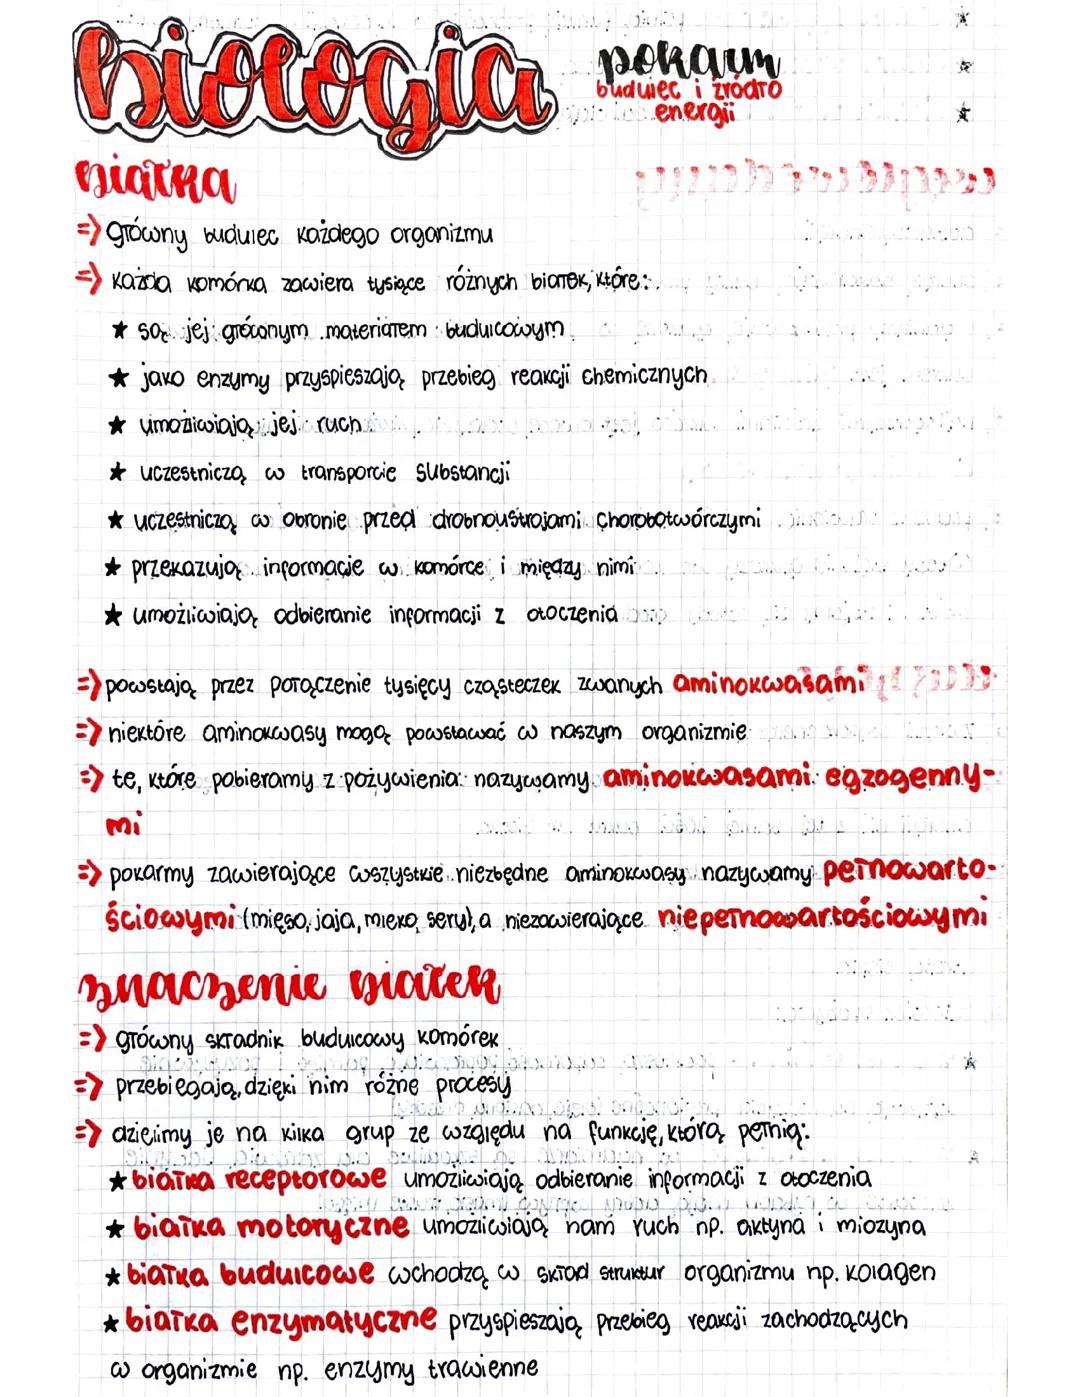 biologia
pokarm
budulec i źródło
energii
białka
=> główny budulec każdego organizmu
=> każda komórka zawiera tysiące różnych białek, które:
★ są jej głównym materiałem budulcowym
★ jako enzymy przyspieszają przebieg reakcji chemicznych
★ umożliwiają jej ruch
★ uczestniczą w transporcie substancji
★ uczestniczą w obronie przed drobnoustrojami chorobotwórczymi
★ przekazują informacje w komórce i między nimi
★ umożliwiają odbieranie informacji z otoczenia
=> powstają przez połączenie tysięcy cząsteczek zwanych aminokwasami
=> niektóre aminokwasy mogą powstawać w naszym organizmie
=> te, które pobieramy z pożywienia nazywamy aminokwasami egzogenny-
mi
=> pokarmy zawierające wszystkie niezbędne aminokwasy nazywamy pełnowarto-
ściowymi (mięso, jaja, mleko, sery), a niezawierające niepełnowartościowymi
znaczenie białek
=> główny składnik budulcowy komórek
=> przebiegają dzięki nim różne procesy
=> dzielimy je na kilka grup ze względu na funkcję, którą pełnią:
★ białka receptorowe umożliwiają odbieranie informacji z otoczenia
★ białka motoryczne umożliwiają nam ruch np. aktyna i miozyna
★ białka budulcowe wchodzą w skład struktur organizmu np. kolagen
★ białka enzymatyczne przyspieszają przebieg reakcji zachodzących
w organizmie np. enzymy trawienne